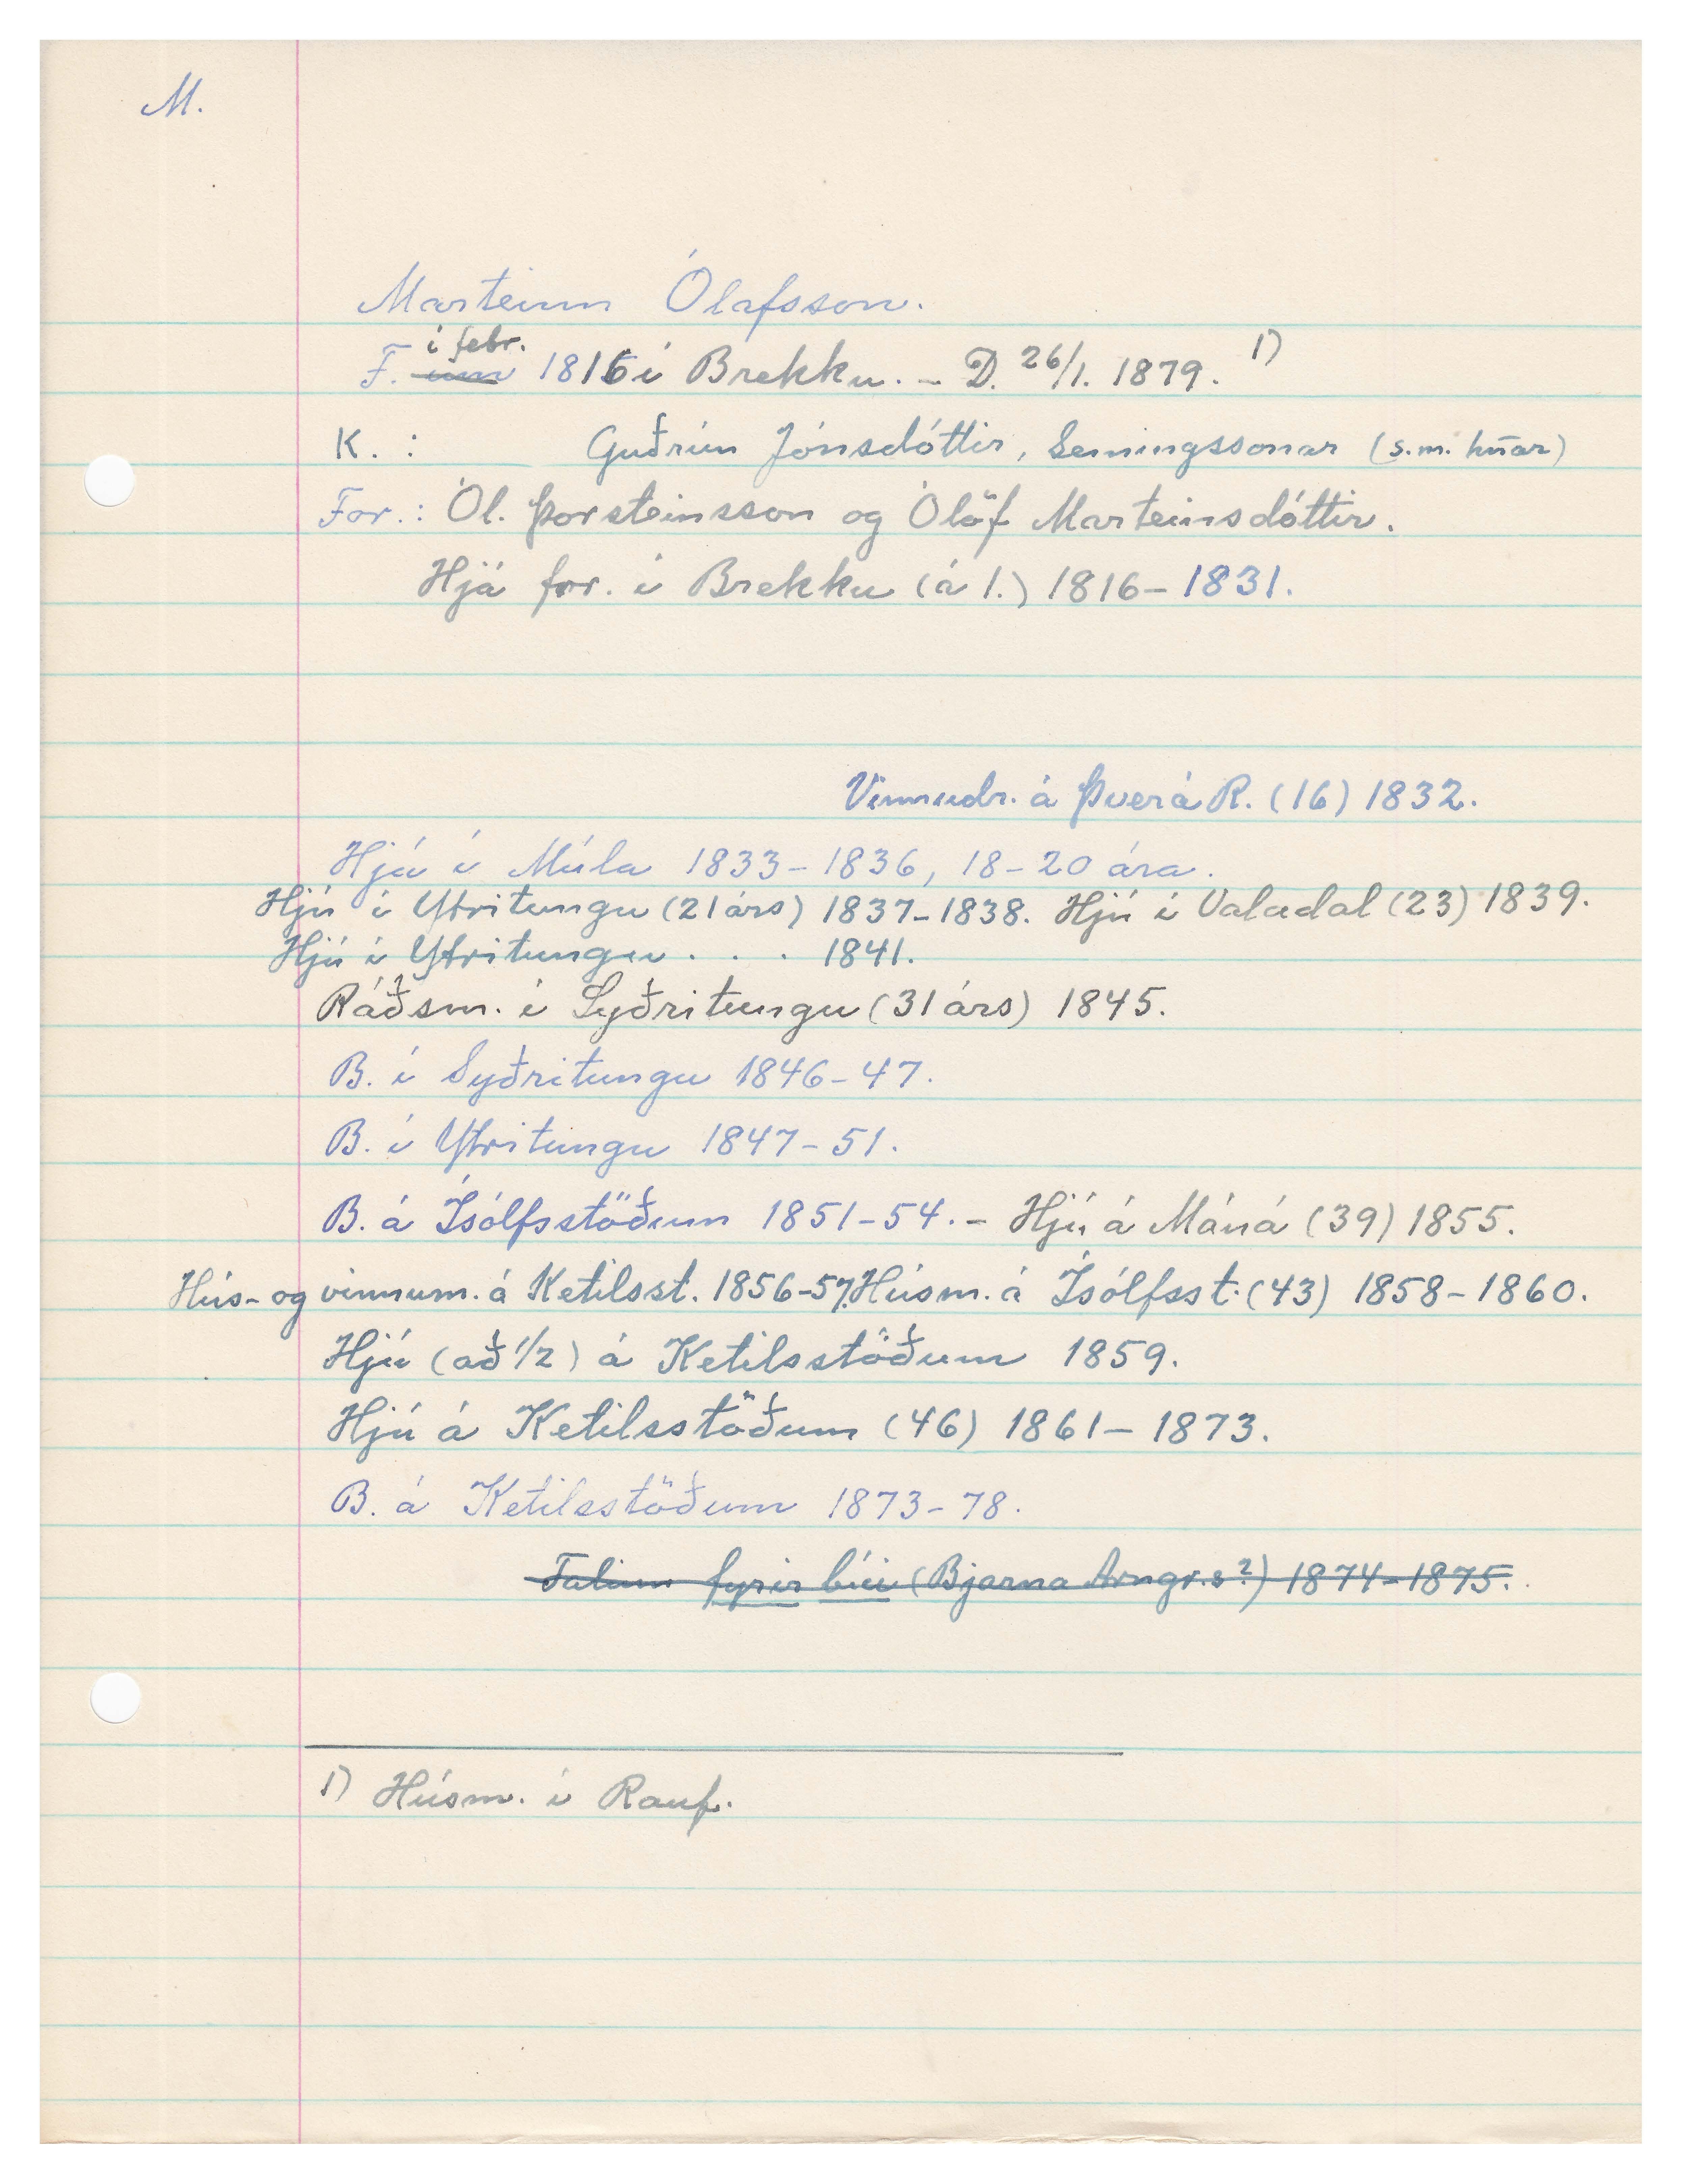 M.
Marteinn Ólafsson.
í febr.
F. um 1816 í Brekku. – D. 26/1. 1879. 1)
K. : Guðrún Jónsdóttir, Semingssonar (s.m. hn̄ar)
For.: Ól. Þorsteinsson og Ólöf Marteinsdóttir.
Hjá for. í Brekku (á 1.) 1816–1831.
Vinnudr. á Þverá R. (16) 1832.
Hjú í Múla 1833–1836, 18–20 ára.
Hjú í Ytritungu (21 árs) 1837–1838. Hjú í Valadal (23) 1839.
Hjú í Ytritungu . . . 1841.
Ráðsm. í Syðritungu (31 árs) 1845.
B. í Syðritungu 1846–47.
B. í Ytritungu 1847–51.
B. á Ísólfsstöðum 1851–54. – Hjú á Máná (39) 1855.
Hús- og vinnum. á Ketilsst. 1856–57. Húsm. á Ísólfsst. (43) 1858–1860.
Hjú (að 1/2) á Ketilsstöðum 1859.
Hjú á Ketilsstöðum (46) 1861–1873.
B. á Ketilsstöðum 1873–78.
Talinn fyrir búi (Bjarna Arngr.s?) 1874–1875.
1) Húsm. í Rauf.